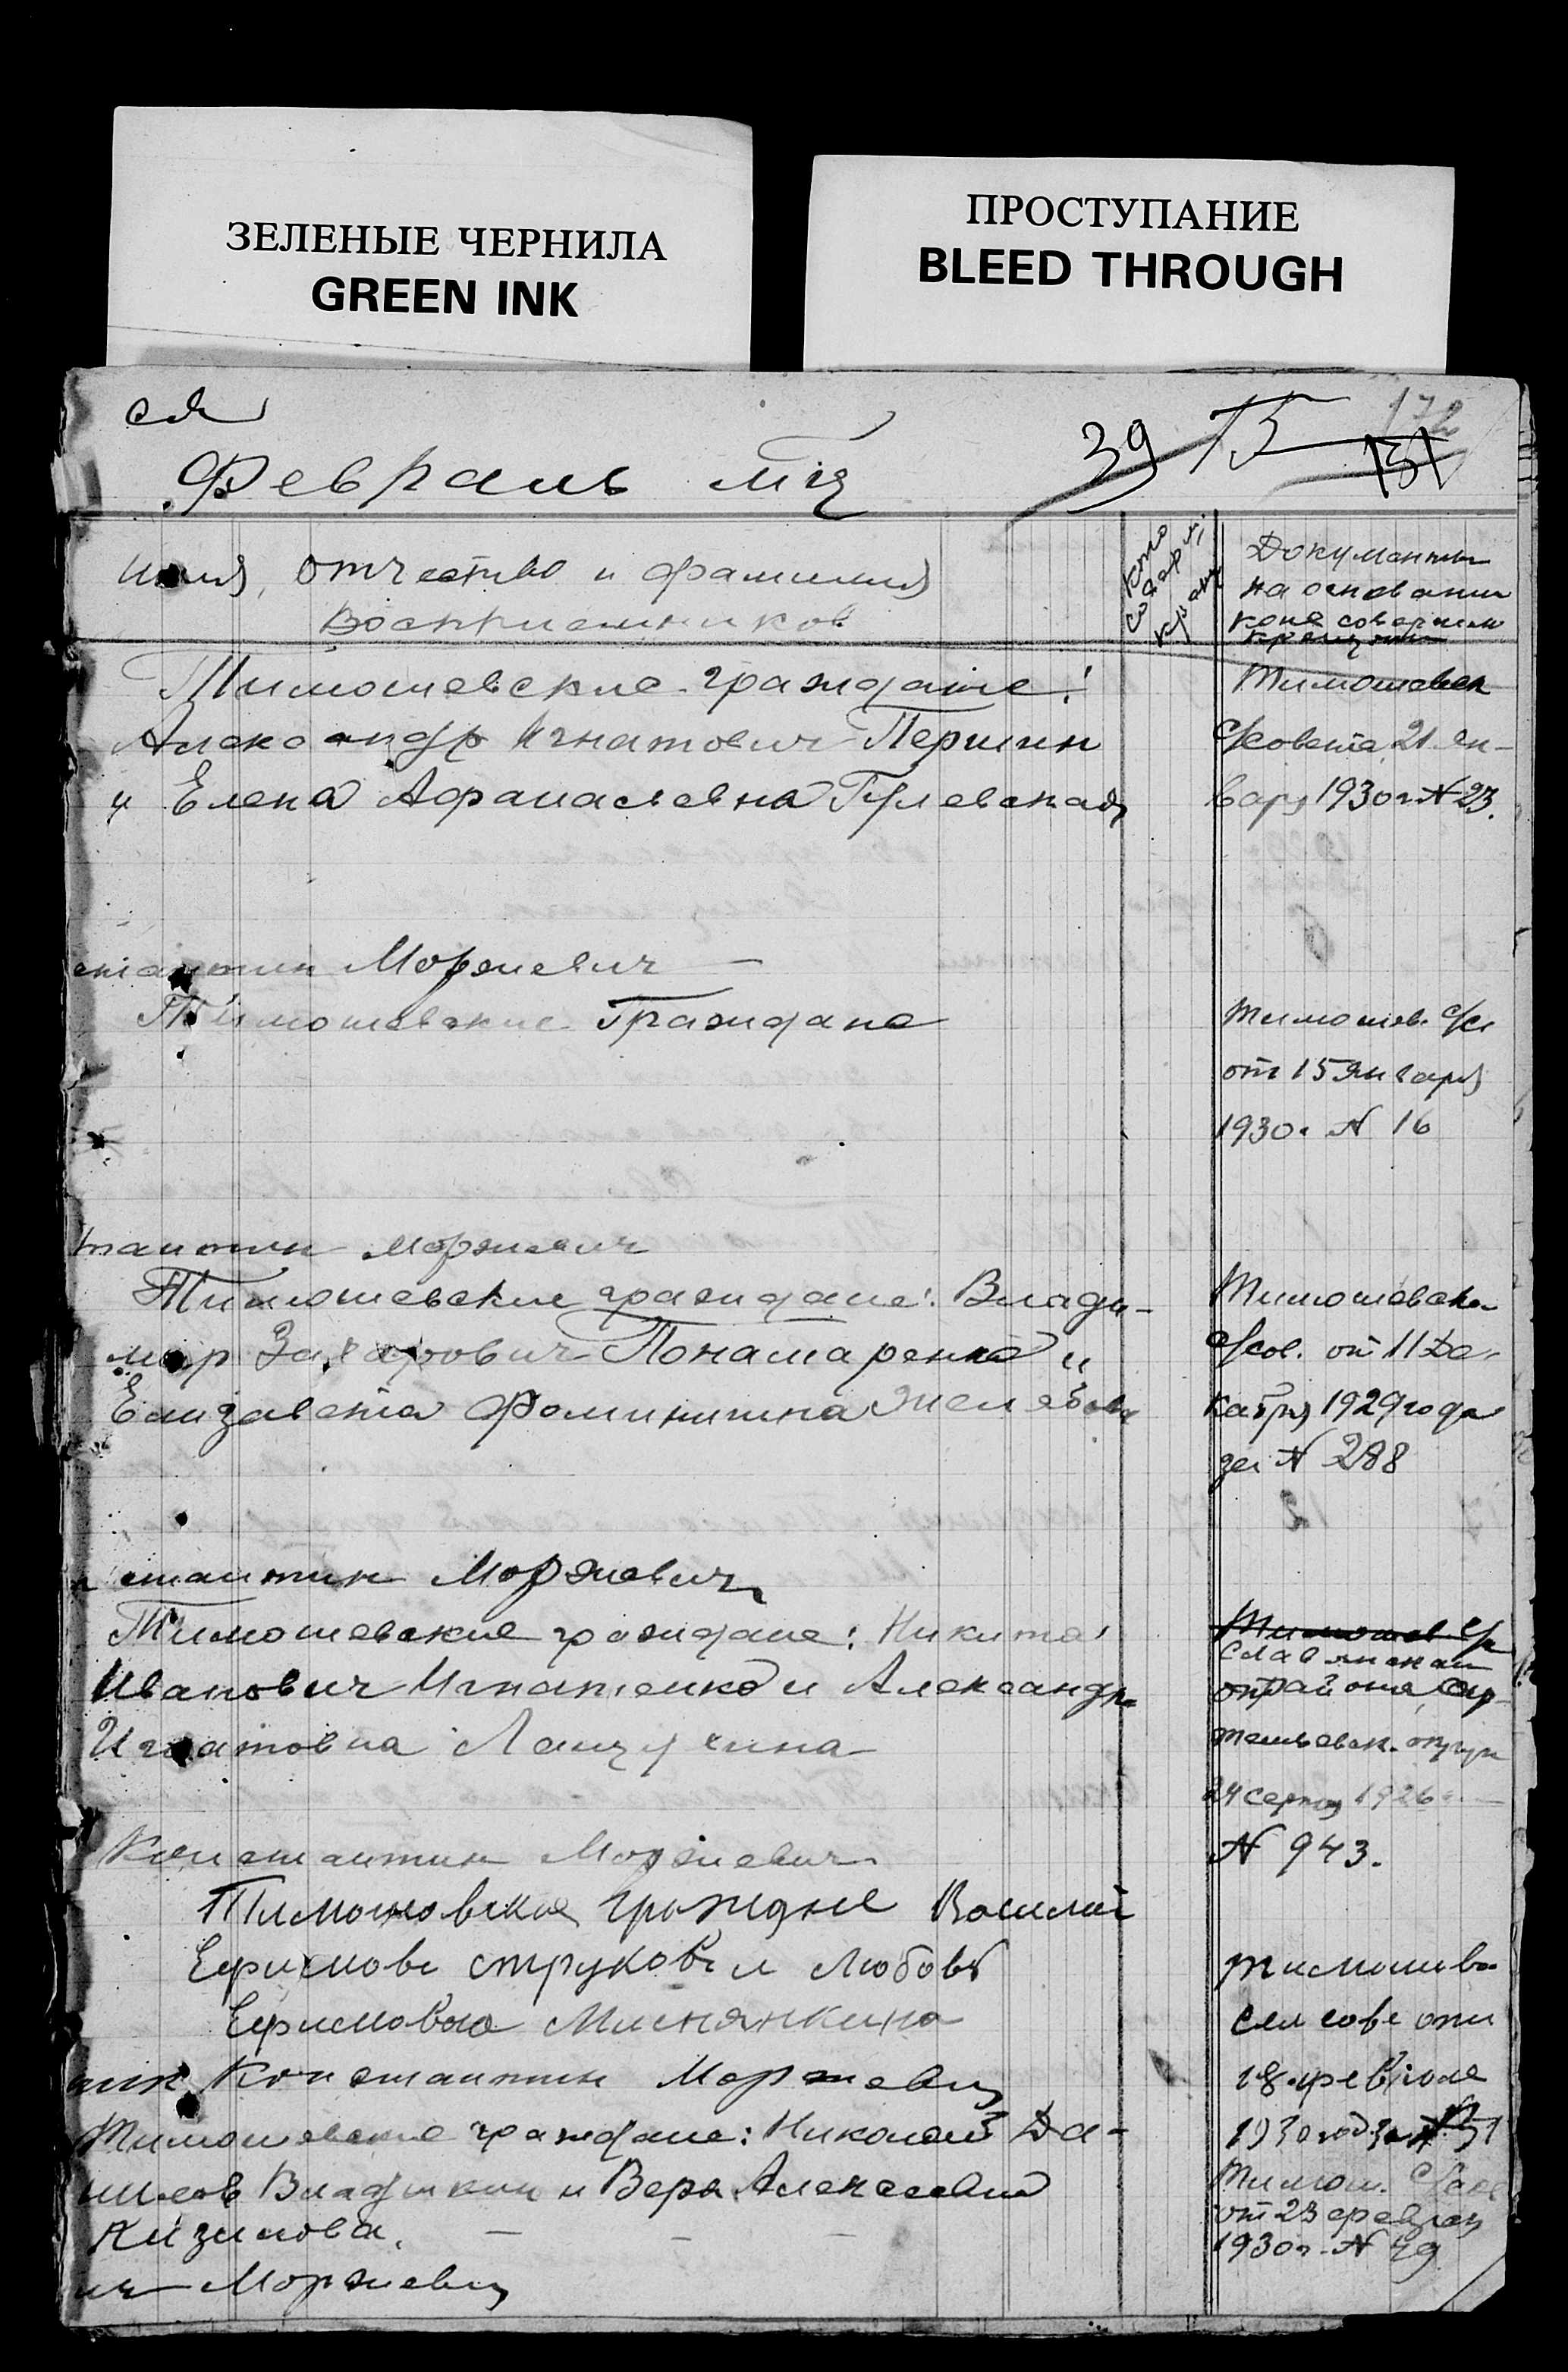 ЗЕЛЕНЫЕ ЧЕРНИЛА
GREEN INK
ПРОСТУПАНИЕ
BLEED THROUGH
ся
172
39 75 131
Февраль м-ц
имя, отчество и фамилия
восприемников
кто
соверш.
Документы
на основании
коие соверш
крещение
Тимошевские граждане:
Александр Игнатович Першин
и Елена Афанасьевна Гулевская
Тимошевск
с/совета 21 ян-
варя 1930 г № 23.
стантин Моржевич —
Тимошевские Граждане
Тимошев. с/с
от 15 января
1930 г № 16
тантин Моржевич
Тимошевские граждане: Влади-
мир Захарович Понамаренко и
Елизавета Фоминишна
Тимошевск
с/сов. от 11 Де-
кабря 1929 года
за № 288
стантин Моржевич
Тимошевские граждане: Никита
Иванович Игнатенко и Александра
Игнатовна
Тимошев с/с
Славянский
район
24 1926
№ 943.
Константин Моржевич
Тимошовские граждне Василий
Ефимовъ струковъ и Любовъ
Ефимовна
тимошев
сел сове от
18 февроля
1930 год за № 51
ник Константин Моржевич
Тимошевские граждане: Николай Да-
нилов и Вера Алексеевна
Кизилова.
Тимош. с/сов
от 23 февраля
1930 г № 49
ин Моржевич